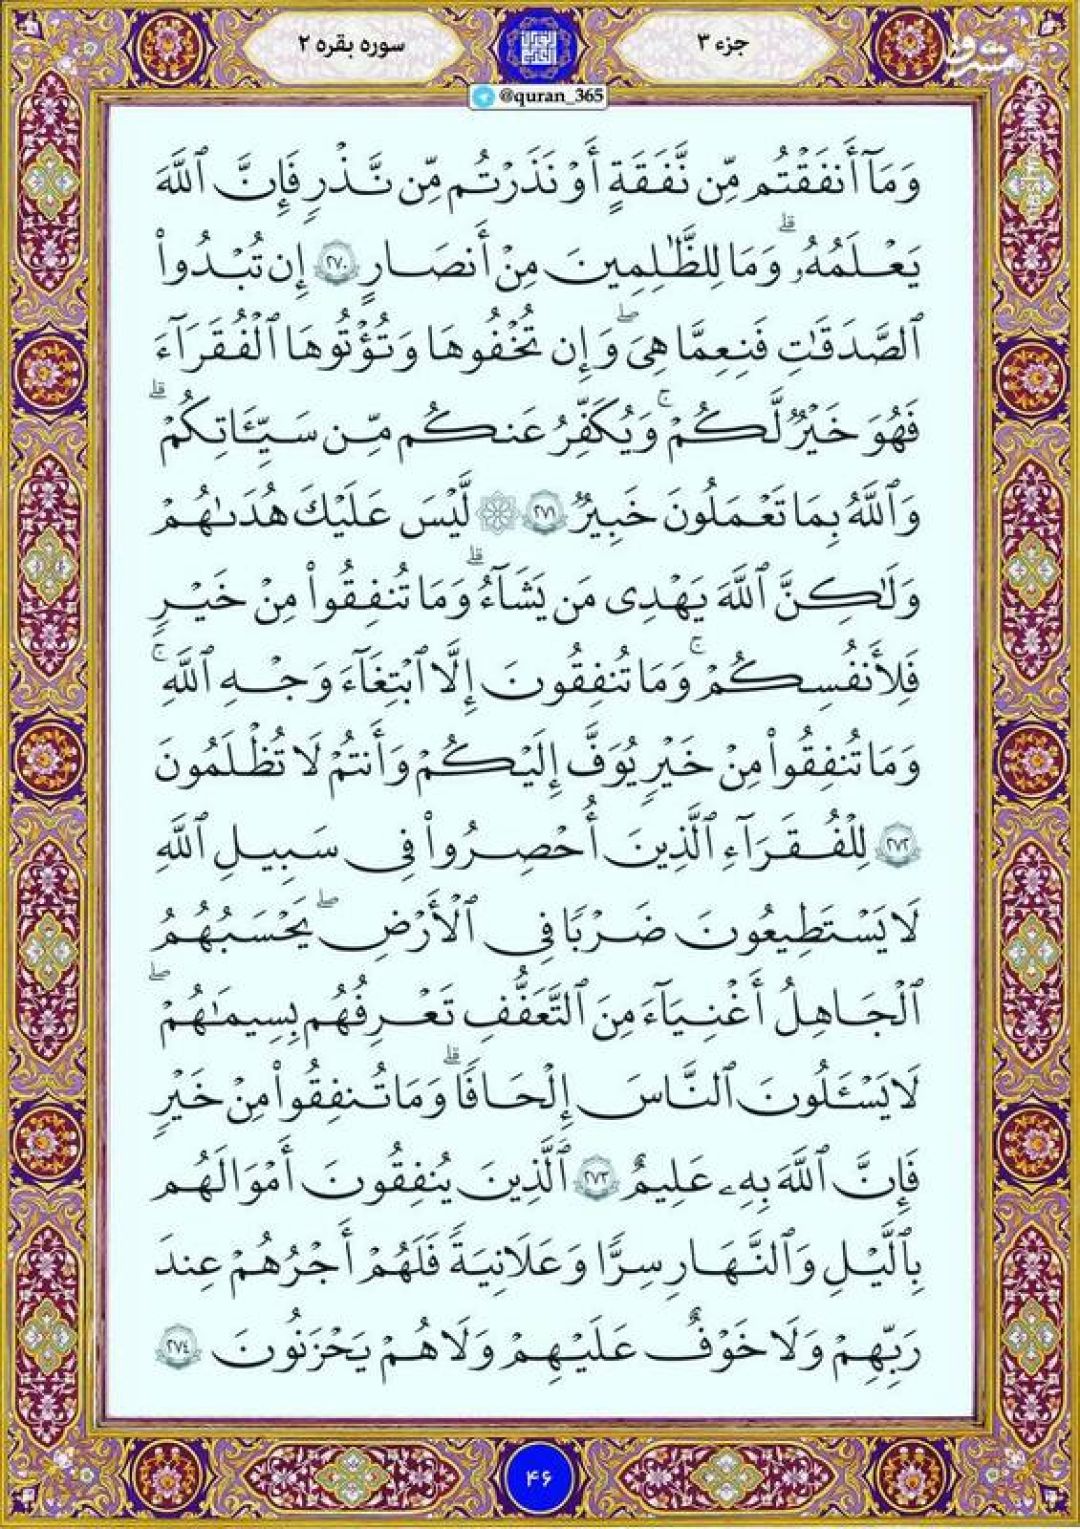 جزء ۳
سوره بقره ۲
@quran_365
وَمَآ أَنفَقْتُم مِّن نَّفَقَةٍ أَوْ نَذَرْتُم مِّن نَّذْرٍ فَإِنَّ ٱللَّهَ
يَعْلَمُهُۥ ۗ وَمَا لِلظَّـٰلِمِينَ مِنْ أَنصَارٍ ٢٧٠ إِن تُبْدُوا۟
ٱلصَّدَقَـٰتِ فَنِعِمَّا هِىَ ۖ وَإِن تُخْفُوهَا وَتُؤْتُوهَا ٱلْفُقَرَآءَ
فَهُوَ خَيْرٌ لَّكُمْ ۚ وَيُكَفِّرُ عَنكُم مِّن سَيِّـَٔاتِكُمْ ۗ
وَٱللَّهُ بِمَا تَعْمَلُونَ خَبِيرٌ ٢٧١ ۞ لَّيْسَ عَلَيْكَ هُدَىٰهُمْ
وَلَـٰكِنَّ ٱللَّهَ يَهْدِى مَن يَشَآءُ ۗ وَمَا تُنفِقُوا۟ مِنْ خَيْرٍ
فَلِأَنفُسِكُمْ ۚ وَمَا تُنفِقُونَ إِلَّا ٱبْتِغَآءَ وَجْهِ ٱللَّهِ ۚ
وَمَا تُنفِقُوا۟ مِنْ خَيْرٍ يُوَفَّ إِلَيْكُمْ وَأَنتُمْ لَا تُظْلَمُونَ
٢٧٢ لِلْفُقَرَآءِ ٱلَّذِينَ أُحْصِرُوا۟ فِى سَبِيلِ ٱللَّهِ
لَا يَسْتَطِيعُونَ ضَرْبًا فِى ٱلْأَرْضِ ۖ يَحْسَبُهُمُ
ٱلْجَاهِلُ أَغْنِيَآءَ مِنَ ٱلتَّعَفُّفِ تَعْرِفُهُم بِسِيمَـٰهُمْ ۖ
لَا يَسْـَٔلُونَ ٱلنَّاسَ إِلْحَافًا ۗ وَمَا تُنفِقُوا۟ مِنْ خَيْرٍ
فَإِنَّ ٱللَّهَ بِهِۦ عَلِيمٌ ٢٧٣ ٱلَّذِينَ يُنفِقُونَ أَمْوَٰلَهُم
بِٱلَّيْلِ وَٱلنَّهَارِ سِرًّا وَعَلَانِيَةً فَلَهُمْ أَجْرُهُمْ عِندَ
رَبِّهِمْ وَلَا خَوْفٌ عَلَيْهِمْ وَلَا هُمْ يَحْزَنُونَ ٢٧٤
۴۶